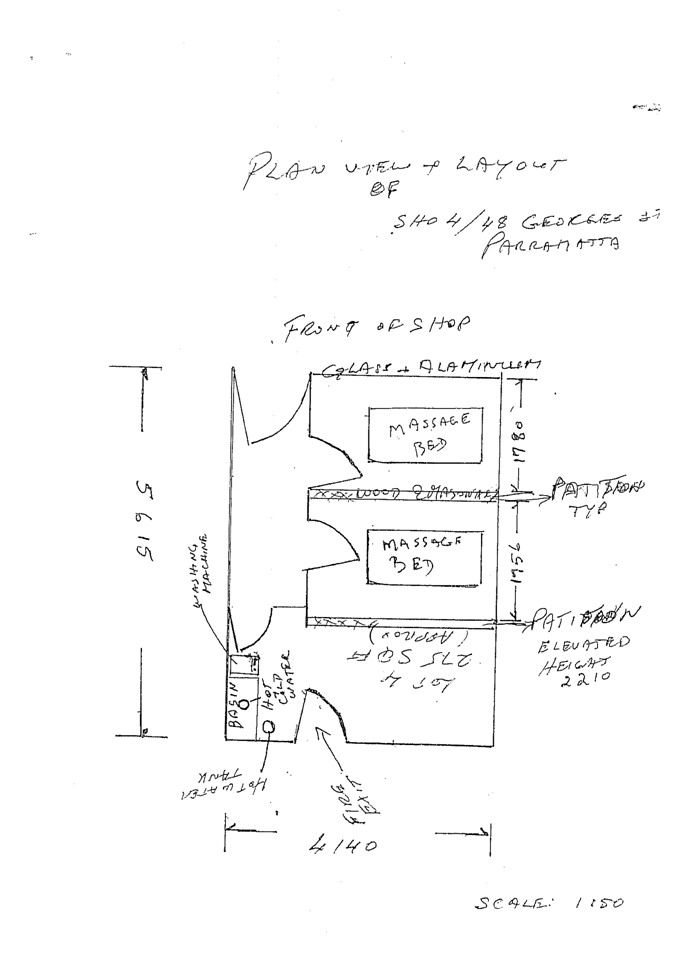 PLAN VIEW + LAYOUT
OF
SHO 4/48 GEORGES ST
PARRAMATTA
FRONT OF SHOP
GLASS + ALAMINIUM
MASSAGE
BED
1780
XXX WOOD
PATITION
TYP
5615
MASSAGE
BED
1756
WASHING
MACHINE
XXXX
PATITION
ELEVATED
HEIGHT
2210
LOT 4
275 SQ FT
(APPROX)
BASIN
HOT
COLD
WATER
HOT WATER
TANK
FIRE
EXIT
4140
SCALE: 1:50